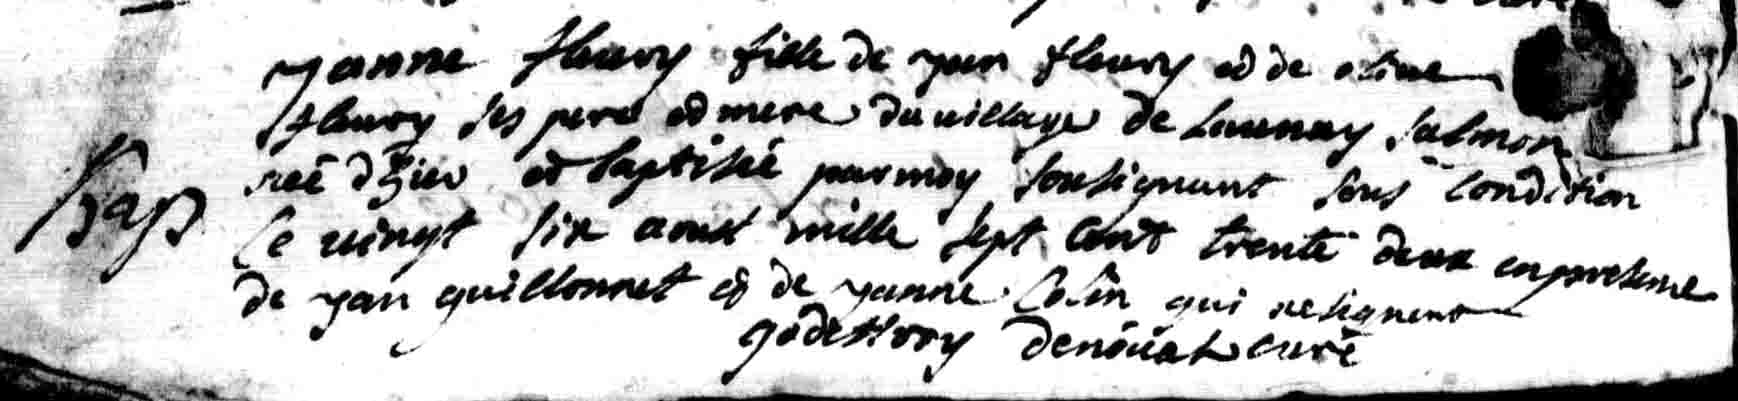 yanne fleury fille de yan fleury et de olive
fleury ses pere et mere du village de Launay salmon
née d'hier et baptisée par moy sousignant sous condition
le vingt six aoust mille sept cent trente deux en presence
Bap
de yan guillonnet et de yanne Colin qui ne signent
godeffroy denoual curé